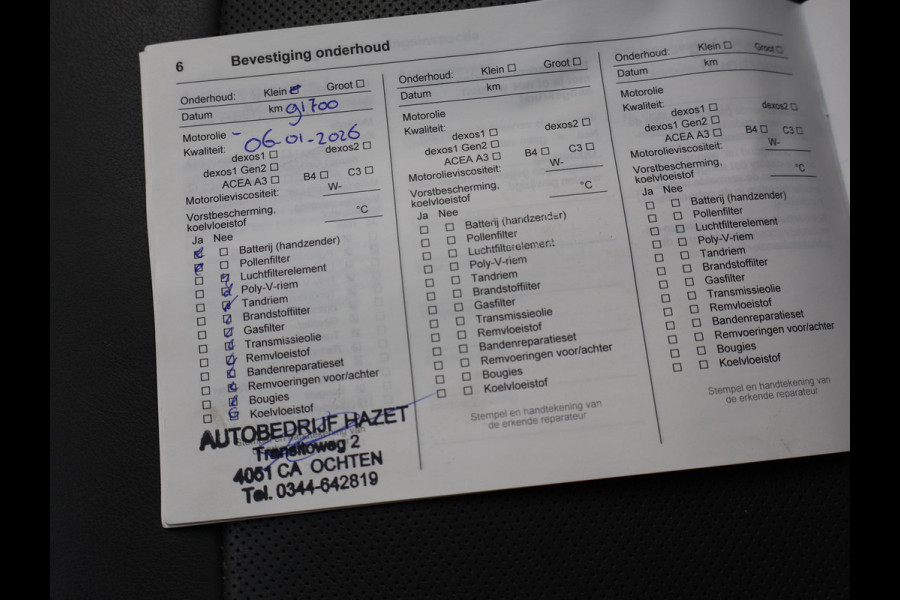 6 Bevestiging onderhoud
Onderhoud: Klein Groot
Datum km 91700
Motorolie - 06-01-2026
Kwaliteit:
dexos1 dexos2
dexos1 Gen2
ACEA A3 B4 C3
Motorolieviscositeit: W-
Vorstbescherming,
koelvloeistof °C
Ja Nee
Batterij (handzender)
Pollenfilter
Luchtfilterelement
Poly-V-riem
Tandriem
Brandstoffilter
Gasfilter
Transmissieolie
Remvloeistof
Bandenreparatieset
Remvoeringen voor/achter
Bougies
Koelvloeistof
AUTOBEDRIJF HAZET
Transitoweg 2
4051 CA OCHTEN
Tel. 0344-642819
Onderhoud: Klein Groot
Datum km
Motorolie
Kwaliteit:
dexos1 dexos2
dexos1 Gen2
ACEA A3 B4 C3
Motorolieviscositeit: W-
Vorstbescherming,
koelvloeistof °C
Ja Nee
Batterij (handzender)
Pollenfilter
Luchtfilterelement
Poly-V-riem
Tandriem
Brandstoffilter
Gasfilter
Transmissieolie
Remvloeistof
Bandenreparatieset
Remvoeringen voor/achter
Bougies
Koelvloeistof
Stempel en handtekening van
de erkende reparateur
Onderhoud: Klein Groot
Datum km
Motorolie
Kwaliteit:
dexos1 dexos2
dexos1 Gen2
ACEA A3 B4 C3
Motorolieviscositeit: W-
Vorstbescherming,
koelvloeistof °C
Ja Nee
Batterij (handzender)
Pollenfilter
Luchtfilterelement
Poly-V-riem
Tandriem
Brandstoffilter
Gasfilter
Transmissieolie
Remvloeistof
Bandenreparatieset
Remvoeringen voor/achter
Bougies
Koelvloeistof
Stempel en handtekening van
de erkende reparateur